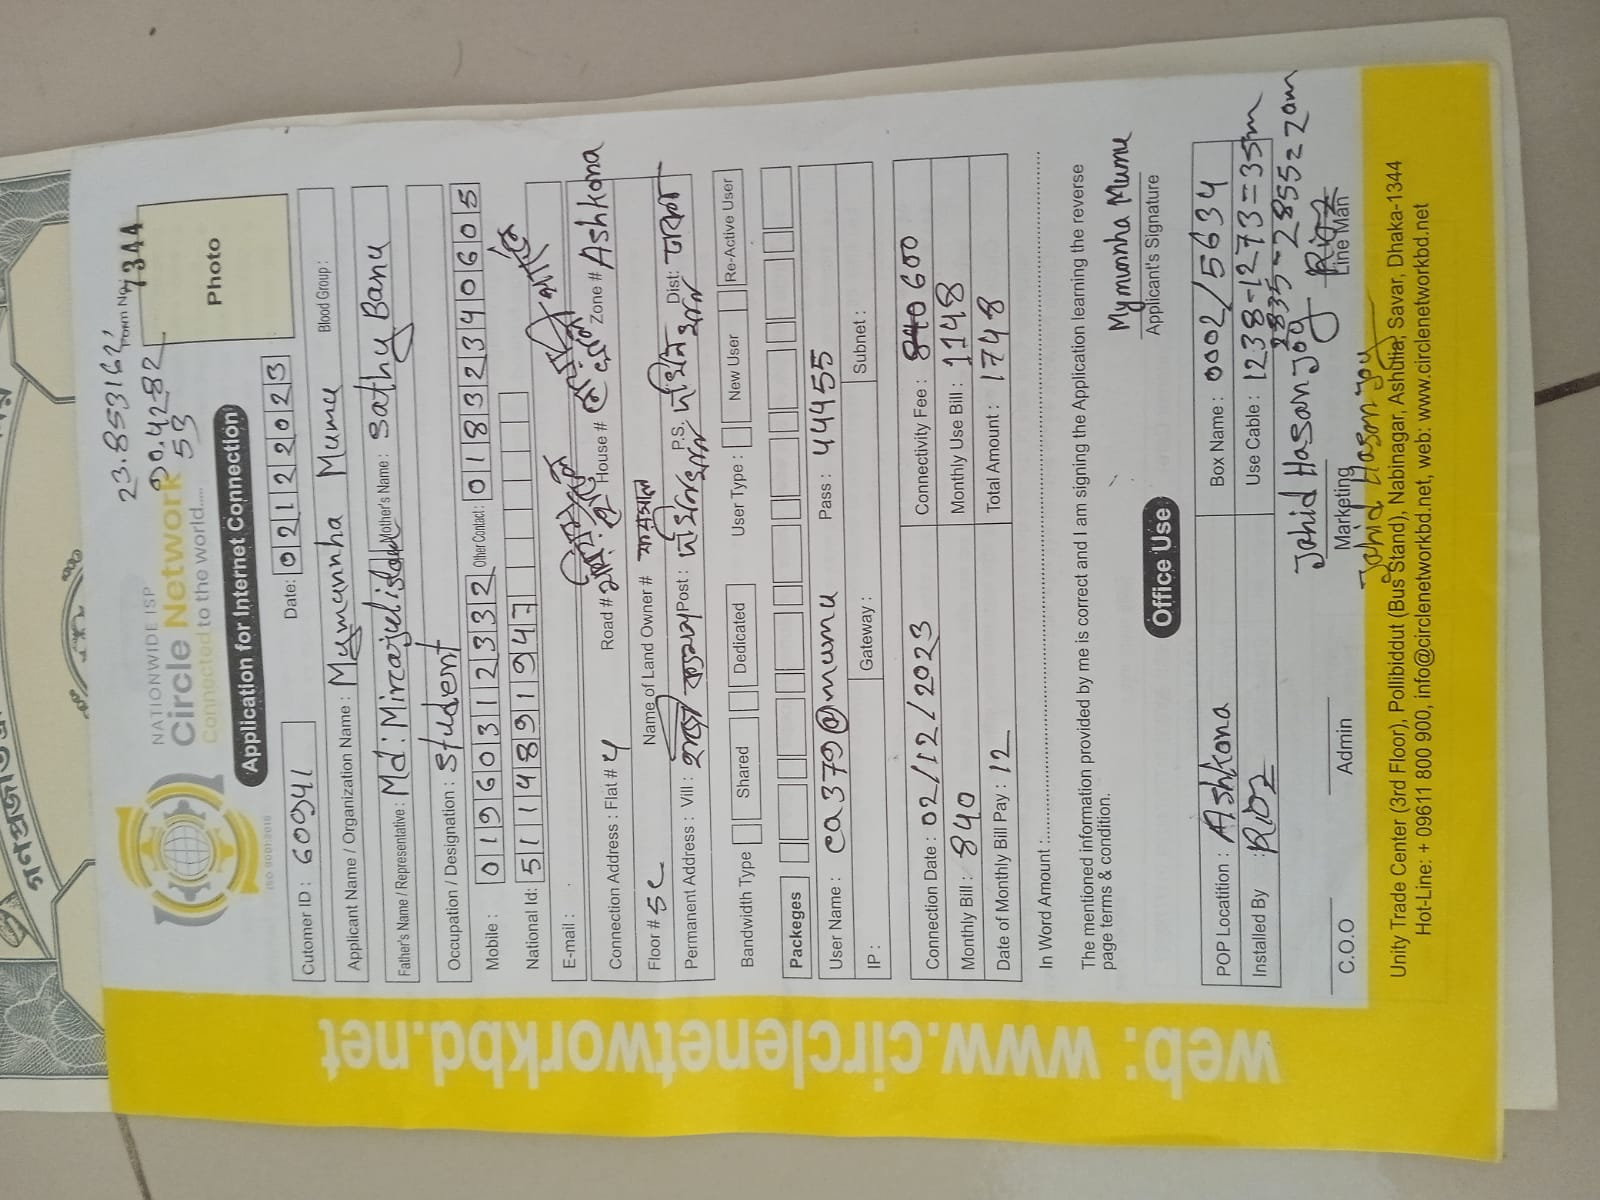 গণপ্রজাত
23.853162
90.4282
53
FORM No. 7344
NATIONWIDE ISP
Circle Network
Connected to the world.....
ISO 9001:2015
Photo
Application for Internet Connection
Cutomer ID : 60941 Date: 02122023
Applicant Name / Organization Name : Mymunnha Mumu Blood Group :
Father's Name / Representative : Md: Mirajul islam Mother's Name : Sathy Banu
Occupation / Designation : Student
Mobile : 01960312332 Other Contact: 01832340605
National Id: 5114891947
E-mail :
Connection Address : Flat # 4 Road # House # Zone # Ashkona
Floor # 5c Name of Land Owner #
Permanent Address : Vill : Post : P.S. দক্ষিন Dist: ঢাকা
Bandwidth Type Shared Dedicated User Type : New User Re-Active User
Packeges
User Name : ca379@mumu Pass : 44455
IP : Gateway : Subnet :
Connection Date : 02/12/2023 Connectivity Fee : 840 600
Monthly Bill : 840 Monthly Use Bill : 1148
Date of Monthly Bill Pay : 12 Total Amount : 1748
In Word Amount :
The mentioned information provided by me is correct and I am signing the Application learning the reverse
page terms & condition.
Mymunnha Mumu
Applicant's Signature
Office Use
POP Locatition : Ashkona Box Name : 0002/5634
Installed By : Use Cable : 1238-1273=35m
2835-2855=20m
Jahid Hasan Joy
C.O.O Admin Marketing Line Man
Jahid Hasan Joy
Unity Trade Center (3rd Floor), Pollibiddut (Bus Stand), Nabinagar, Ashulia, Savar, Dhaka-1344
Hot-Line: + 09611 800 900, info@circlenetworkbd.net, web: www.circlenetworkbd.net
web: www.circlenetworkbd.net